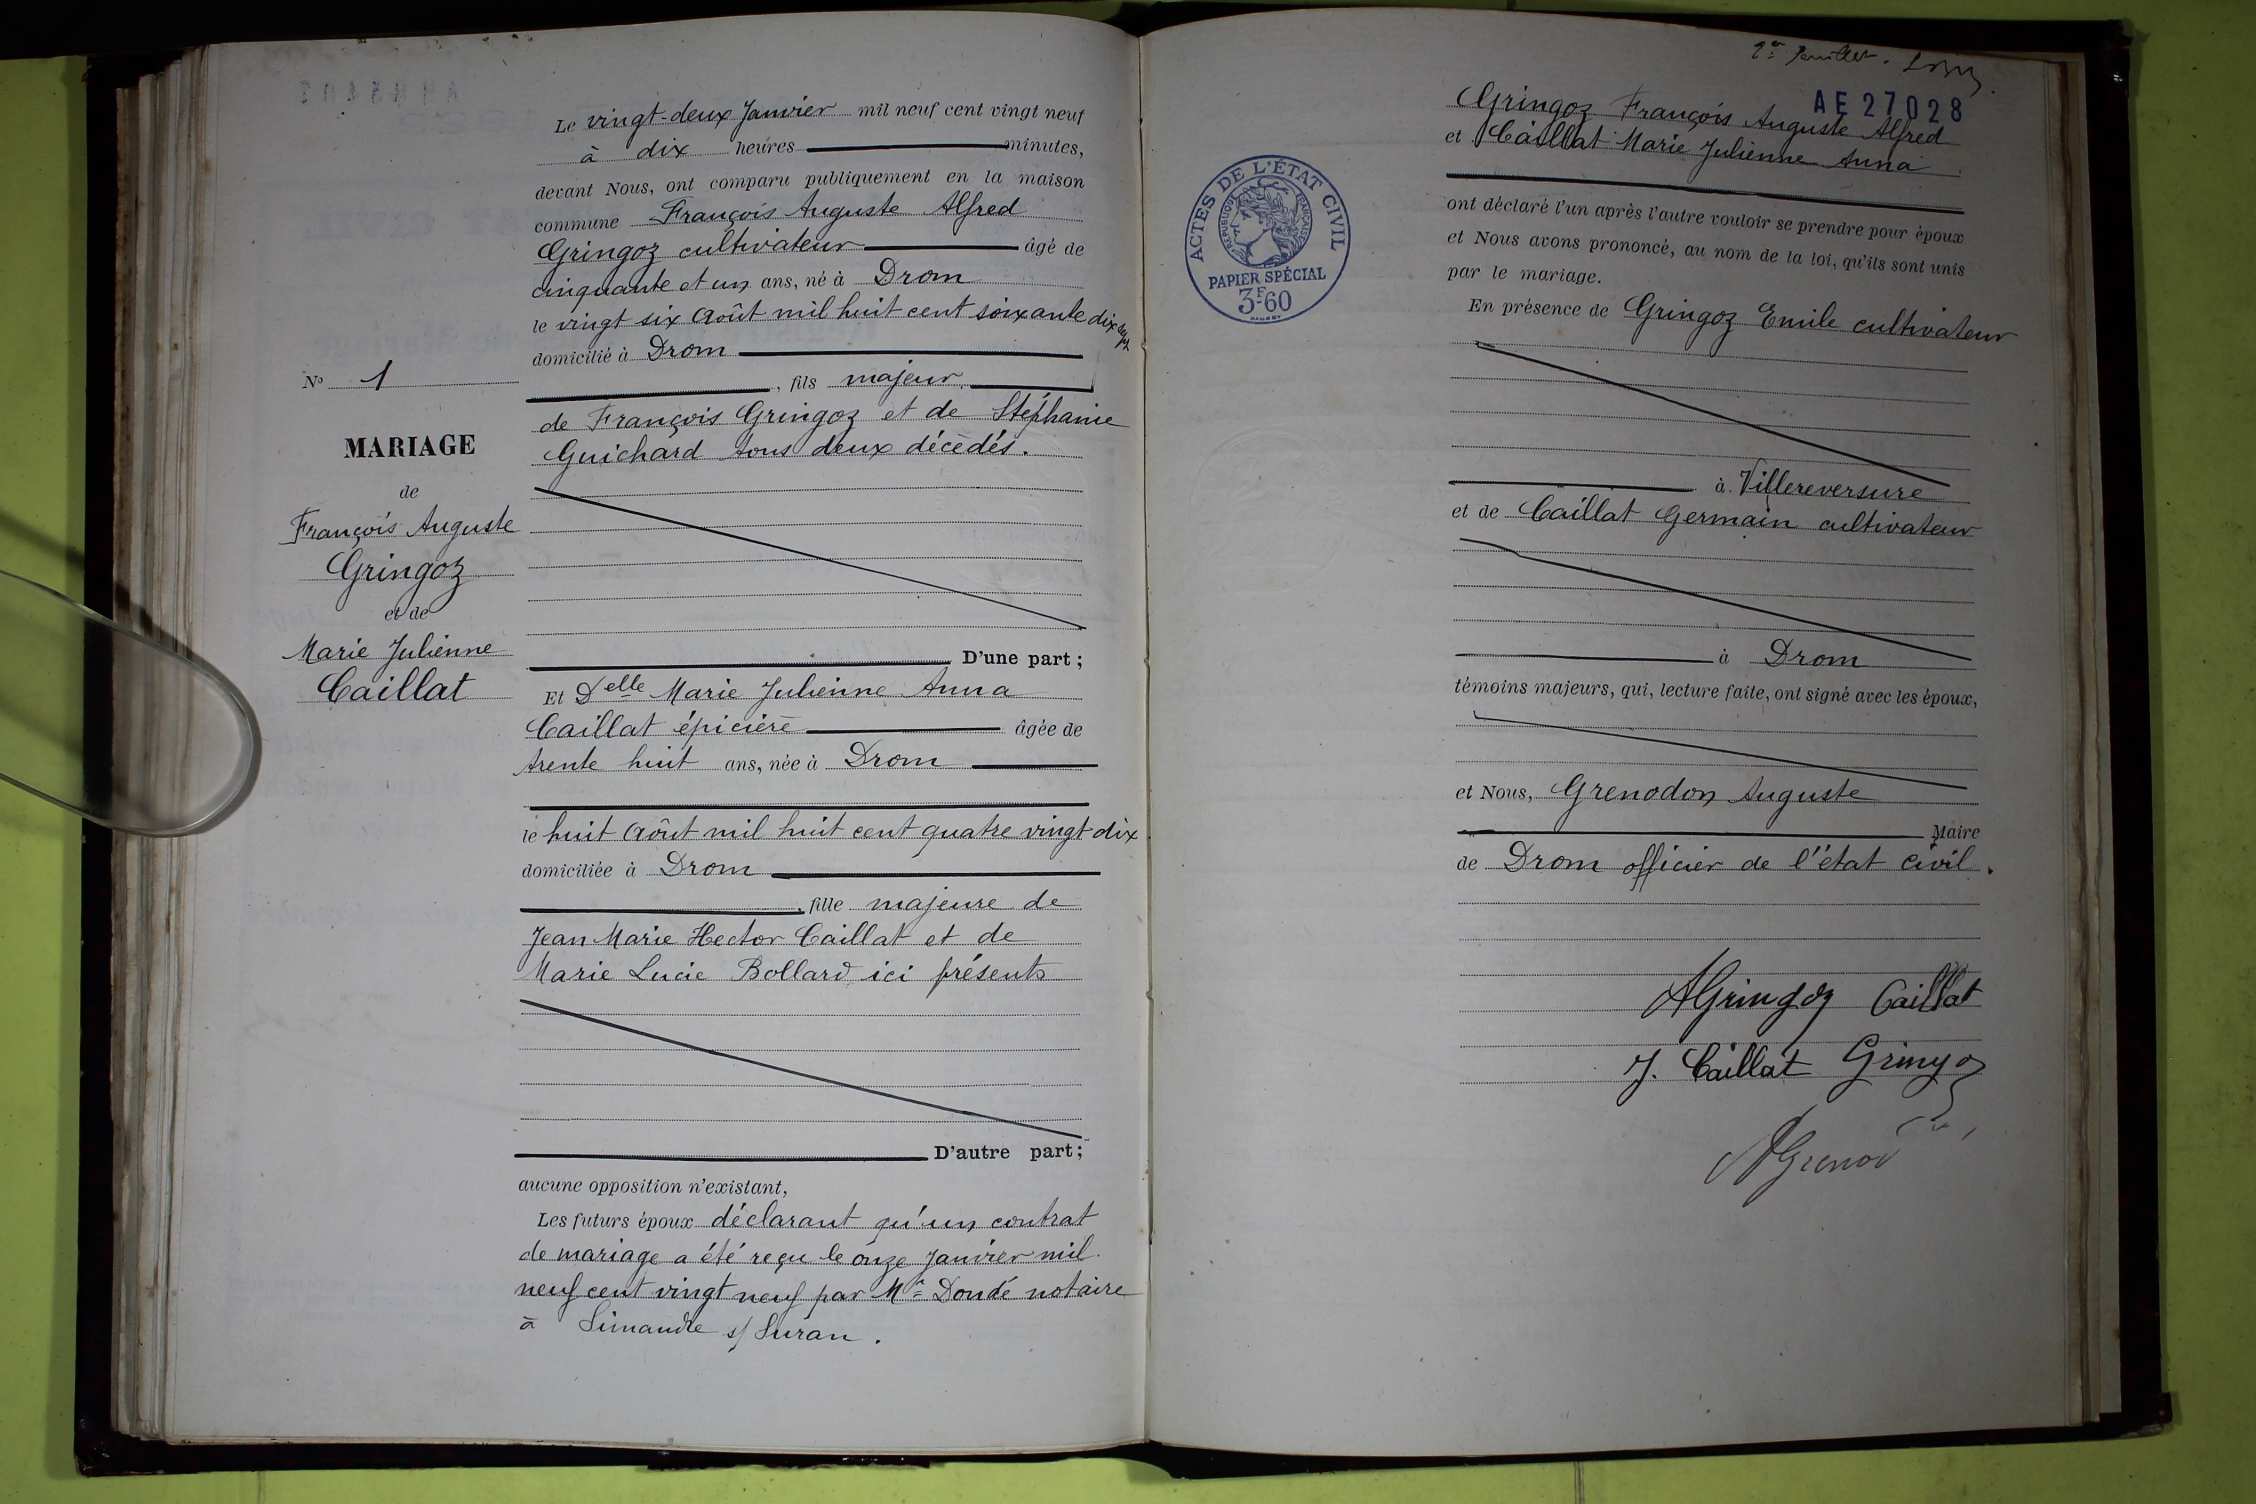 N° 1
MARIAGE
de
François Auguste
Gringoz
et de
Marie Julienne
Caillat
Le vingt-deux Janvier mil neuf cent vingt neuf
à dix heures minutes,
devant Nous, ont comparu publiquement en la maison
commune François Auguste Alfred
Gringoz cultivateur âgé de
cinquante et un ans, né à Drom
le vingt six Août mil huit cent soixante dix sept
domicilié à Drom
, fils majeur
de François Gringoz et de Stéphanie
Guichard tous deux décèdés.
D'une part ;
Et Delle Marie Julienne Anna
Caillat épicière âgée de
trente huit ans, née à Drom
le huit Août mil huit cent quatre vingt dix
domiciliée à Drom
, fille majeure de
Jean Marie Hector Caillat et de
Marie Lucie Bollard ici présents
D'autre part ;
aucune opposition n'existant,
Les futurs époux déclarant qu'un contrat
de mariage a été reçu le onze Janvier mil
neuf cent vingt neuf par Me Dondé notaire
à Simandre s/ Suran.
2e feuillet.
AE 27028
ACTES DE L'ÉTAT CIVIL
RÉPUBLIQUE FRANÇAISE
PAPIER SPÉCIAL
3F60
Gringoz François Auguste Alfred
et Caillat Marie Julienne Anna
ont déclaré l'un après l'autre vouloir se prendre pour époux
et Nous avons prononcé, au nom de la loi, qu'ils sont unis
par le mariage.
En présence de Gringoz Emile cultivateur
à Villereversure
et de Caillat Germain cultivateur
à Drom
témoins majeurs, qui, lecture faite, ont signé avec les époux,
et Nous, Grenodon Auguste
Maire
de Drom officier de l'état civil.
AGringoz Caillat
J. Caillat Gringoz